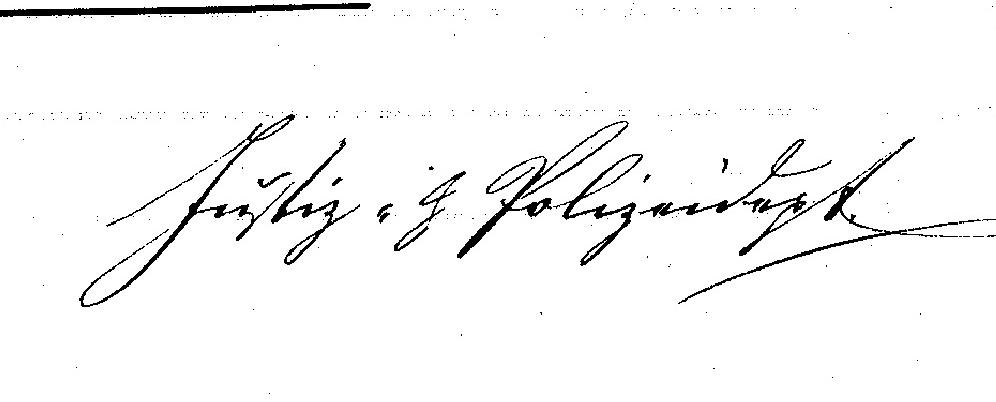 Justiz- & Polizeidept.